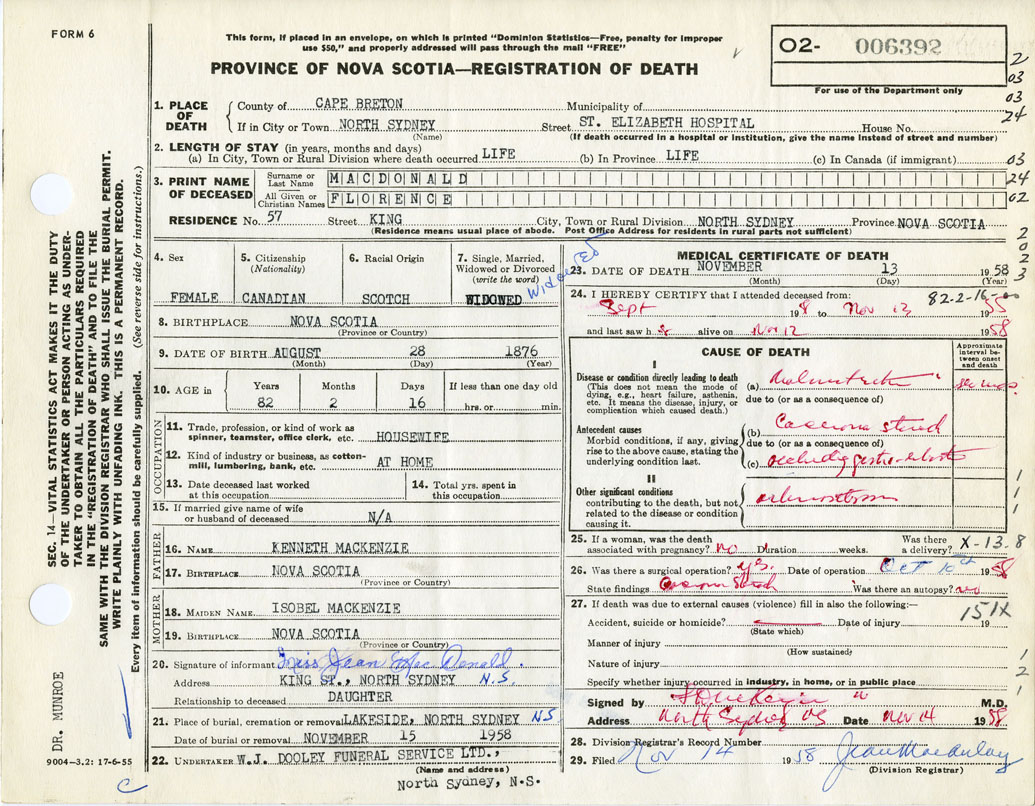 FORM 6
This form, if placed in an envelope, on which is printed "Dominion Statistics—Free, penalty for improper
use $50," and properly addressed will pass through the mail "FREE"
PROVINCE OF NOVA SCOTIA—REGISTRATION OF DEATH
O2- 006392
For use of the Department only
2
03
03
24
1. PLACE OF DEATH
County of CAPE BRETON Municipality of
If in City or Town NORTH SYDNEY Street ST. ELIZABETH HOSPITAL House No.
(Name) (If death occurred in a hospital or institution, give the name instead of street and number)
2. LENGTH OF STAY (in years, months and days)
(a) In City, Town or Rural Division where death occurred LIFE (b) In Province LIFE (c) In Canada (if immigrant)
03
3. PRINT NAME OF DECEASED
Surname or Last Name MACDONALD
24
All Given or Christian Names FLORENCE
02
RESIDENCE No. 57 Street KING City, Town or Rural Division NORTH SYDNEY Province NOVA SCOTIA
(Residence means usual place of abode. Post Office Address for residents in rural parts not sufficient)
2
0
2
3
4. Sex
FEMALE
5. Citizenship
(Nationality)
CANADIAN
6. Racial Origin
SCOTCH
7. Single, Married,
Widowed or Divorced
(write the word)
WIDOWED Widowed
8. BIRTHPLACE NOVA SCOTIA
(Province or Country)
9. DATE OF BIRTH AUGUST 28 1876
(Month) (Day) (Year)
10. AGE in Years Months Days If less than one day old
82 2 16 hrs. or min.
OCCUPATION
11. Trade, profession, or kind of work as
spinner, teamster, office clerk, etc. HOUSEWIFE
12. Kind of industry or business, as cotton-
mill, lumbering, bank, etc. AT HOME
13. Date deceased last worked
at this occupation
14. Total yrs. spent in
this occupation
15. If married give name of wife
or husband of deceased N/A
FATHER
16. NAME KENNETH MACKENZIE
17. BIRTHPLACE NOVA SCOTIA
(Province or Country)
MOTHER
18. MAIDEN NAME ISOBEL MACKENZIE
19. BIRTHPLACE NOVA SCOTIA
(Province or Country)
20. Signature of informant Miss Jean MacDonald.
Address KING ST., NORTH SYDNEY N.S.
Relationship to deceased DAUGHTER
21. Place of burial, cremation or removal LAKESIDE, NORTH SYDNEY N.S
Date of burial or removal NOVEMBER 15 1958
22. UNDERTAKER W.J. DOOLEY FUNERAL SERVICE LTD.,
(Name and address)
North Sydney, N.S.
MEDICAL CERTIFICATE OF DEATH
23. DATE OF DEATH NOVEMBER 13 1958
(Month) (Day) (Year)
24. I HEREBY CERTIFY that I attended deceased from: 82-2-16
Sept 19 to Nov 13 19
and last saw h alive on Nov 12 1958
CAUSE OF DEATH
Approximate
interval be-
tween onset
and death
I
Disease or condition directly leading to death
(This does not mean the mode of
dying, e.g., heart failure, asthenia,
etc. It means the disease, injury, or
complication which caused death.)
(a)
due to (or as a consequence of)
Antecedent causes
Morbid conditions, if any, giving
rise to the above cause, stating the
underlying condition last.
(b)
due to (or as a consequence of)
(c)
II
Other significant conditions
contributing to the death, but not
related to the disease or condition
causing it.
1
1
1
25. If a woman, was the death
associated with pregnancy? no Duration weeks. Was there
a delivery? X-13-8
26. Was there a surgical operation? yes. Date of operation Oct 10th 1958
State findings Was there an autopsy? no
27. If death was due to external causes (violence) fill in also the following:—
151X
Accident, suicide or homicide? Date of injury 19
(State which)
Manner of injury
(How sustained)
Nature of injury
Specify whether injury occurred in industry, in home, or in public place
1
2
1
Signed by M.D.
Address North Sydney NS Date Nov 14 1958
28. Division Registrar's Record Number
29. Filed Nov 14 1958 Jean Macaulay
(Division Registrar)
SEC. 14—VITAL STATISTICS ACT MAKES IT THE DUTY
OF THE UNDERTAKER OR PERSON ACTING AS UNDER-
TAKER TO OBTAIN ALL THE PARTICULARS REQUIRED
IN THE "REGISTRATION OF DEATH" AND TO FILE THE
SAME WITH THE DIVISION REGISTRAR WHO SHALL ISSUE THE BURIAL PERMIT.
WRITE PLAINLY WITH UNFADING INK. THIS IS A PERMANENT RECORD.
Every item of information should be carefully supplied. (See reverse side for instructions.)
DR. MUNROE
9004—3.2: 17-6-55
C